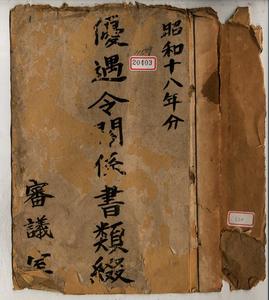 昭和十八年分
優遇令関係書類綴
審議室
20403